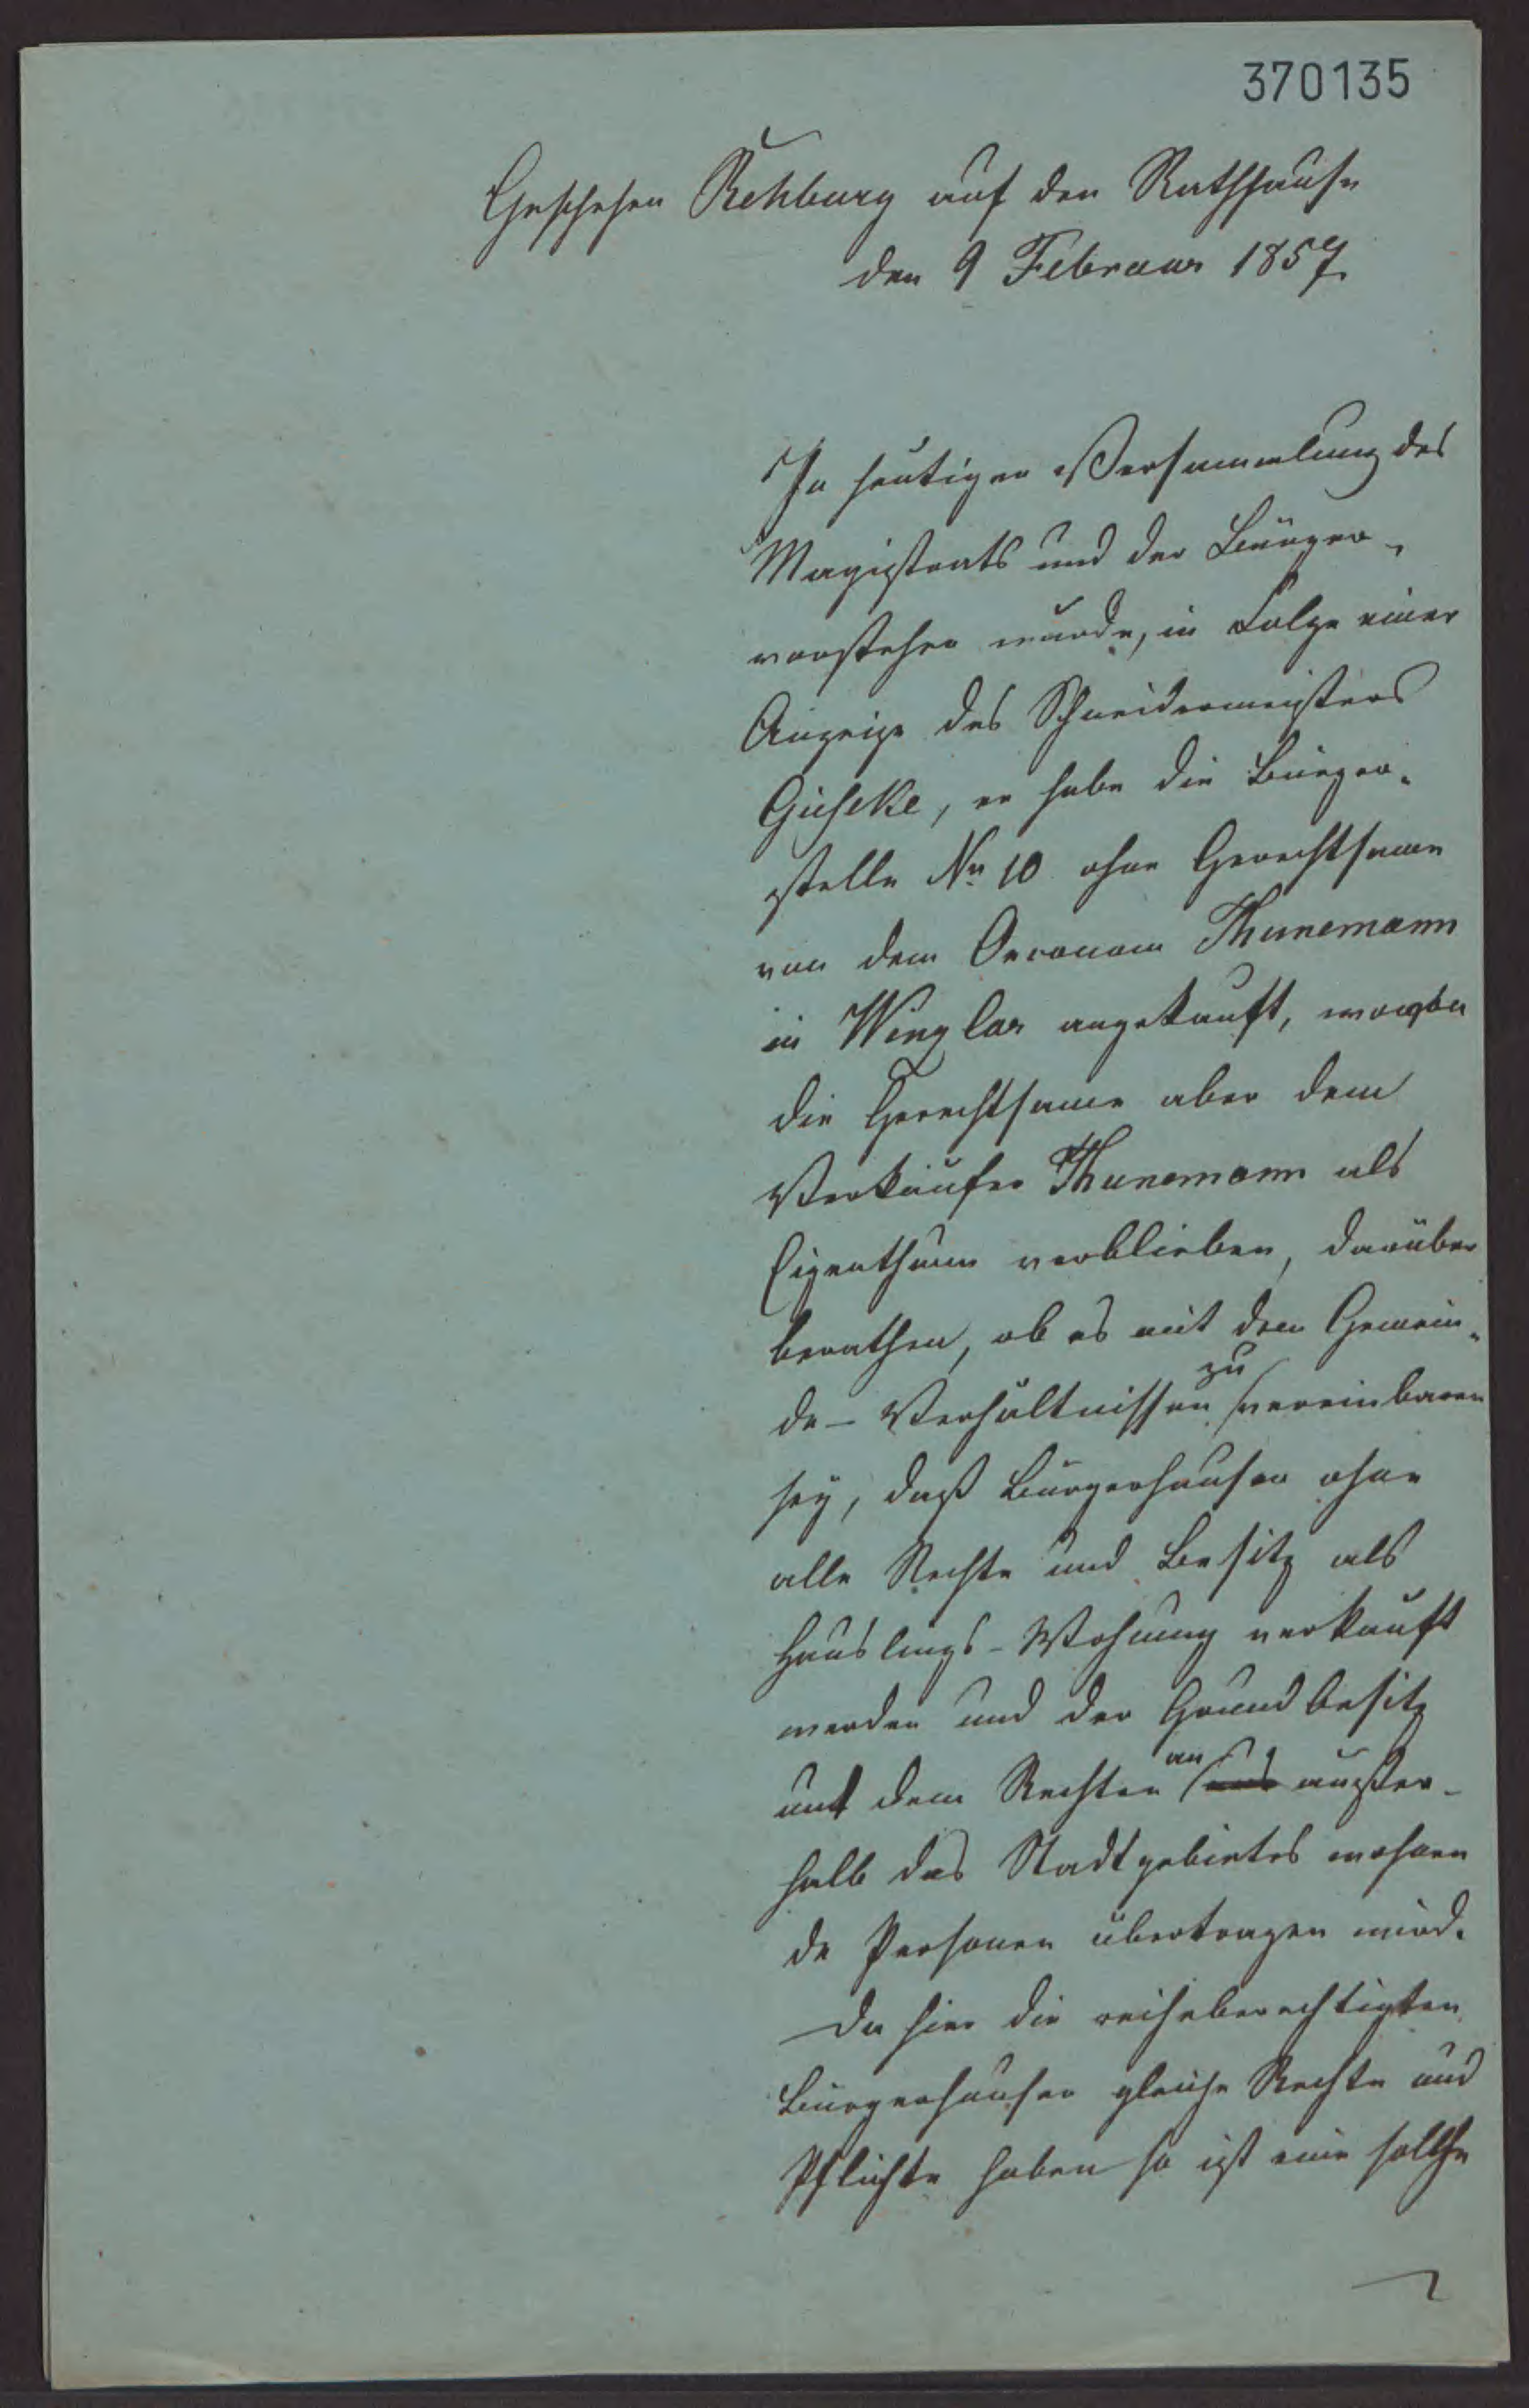 370135
Geschehen Rehburg auf den Rathhause
den 9 Februar 1857
In heutiger Versammlung des
Magistrats und der Bürger-
vorsteher wurde, in Folge einer
Anzeige des Schneidermeisters
, er habe die Bürger-
stelle No 10 ohne Gerechtsame
von dem Oeconom Thunemann
in Winzlar angekauft, wovon
die Gerechtsame aber dem
Verkäufer Thunemann als
Eigenthum verblieben, darüber
berathen, ob es mit den Gemein-
de-Verhältnissen zu vereinbaren
sey, daß Bürgerhäuser ohne
alle Rechte und Besitz als
Häuslings-Wohnung verkauft
werden und der Grundbesitz
mit dem Rechten an außer-
halb des Stadtgebietes wohnen
de Personen übertragen wird.
Da hier die reiheberechtigten
Bürgerhäuser gleiche Rechte und
Pflichte haben so ist eine solche